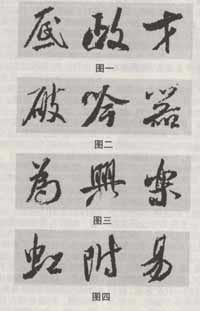 底 政 才
图一
破 吟 器
图二
為 興 宗
图三
虹 附 易
图四